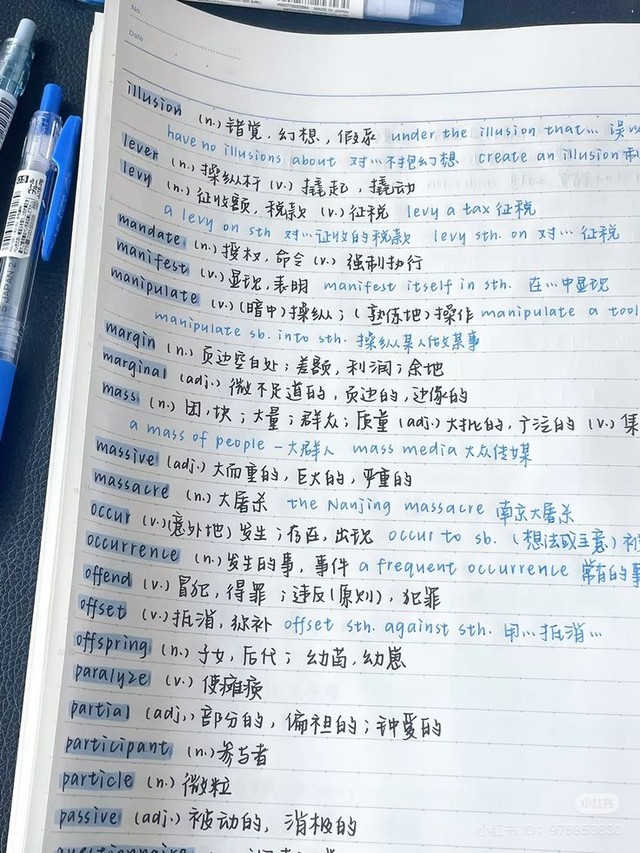 No.
Date
illusion (n.) 错觉,幻想,假象 under the illusion that…
have no illusions about 对…不抱幻想 create an illusion
lever (n.) 操纵杆 (v.) 撬起,撬动
levy (n.) 征收额,税款 (v.) 征税 levy a tax 征税
a levy on sth 对…征收的税款 levy sth. on 对… 征税
mandate (n.) 授权,命令 (v.) 强制执行
manifest (v.) 显现,表明 manifest itself in sth. 在…中显现
manipulate (v.) (暗中)操纵;(熟练地)操作 manipulate a tool
manipulate sb. into sth. 操纵某人做某事
margin (n.) 页边空白处;差额,利润;余地
marginal (adj.) 微不足道的,页边的,边缘的
mass (n.) 团,块;大量;群众;质量 (adj.) 大批的,广泛的 (v.) 集
a mass of people 一大群人 mass media 大众传媒
massive (adj.) 大而重的,巨大的,严重的
massacre (n.) 大屠杀 the Nanjing massacre 南京大屠杀
occur (v.) (意外地) 发生;存在,出现 occur to sb. (想法或主意)被
occurrence (n.) 发生的事,事件 a frequent occurrence 常有的事
offend (v.) 冒犯,得罪;违反(原则),犯罪
offset (v.) 抵消,弥补 offset sth. against sth. 用…抵消…
offspring (n.) 子女,后代;幼苗,幼崽
paralyze (v.) 使瘫痪
partial (adj.) 部分的,偏袒的;钟爱的
participant (n.) 参与者
particle (n.) 微粒
passive (adj.) 被动的,消极的
questionnaire
小红书
小红书 ID: 975953830